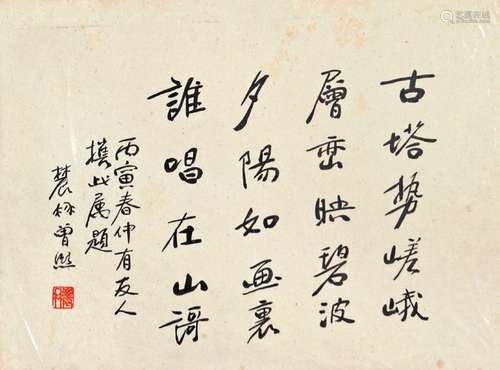 古塔势嵯峨
層峦映碧波
夕陽如画裏
誰唱在山謌
丙寅春仲有友人
携此属題
農髯曾熙